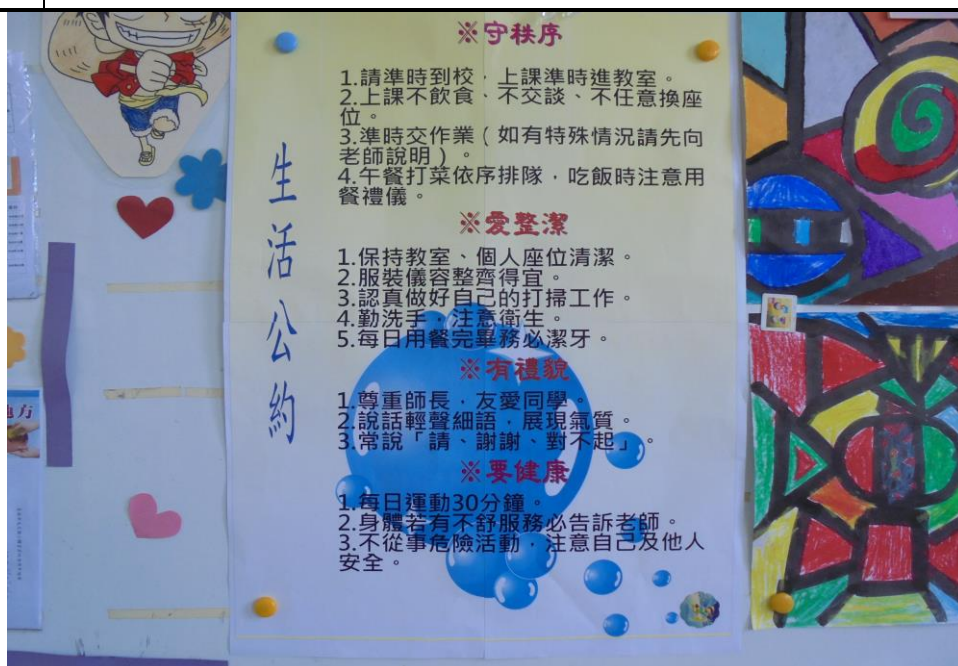 生活公約
※守秩序
1.請準時到校、上課準時進教室。
2.上課不飲食、不交談、不任意換座
位。
3.準時交作業（如有特殊情況請先向
老師說明）。
4.午餐打菜依序排隊，吃飯時注意用
餐禮儀。
※愛整潔
1.保持教室、個人座位清潔。
2.服裝儀容整齊得宜。
3.認真做好自己的打掃工作。
4.勤洗手，注意衛生。
5.每日用餐完畢務必潔牙。
※有禮貌
1.尊重師長，友愛同學。
2.說話輕聲細語，展現氣質。
3.常說「請、謝謝、對不起」。
※要健康
1.每日運動30分鐘。
2.身體若有不舒服務必告訴老師。
3.不從事危險活動，注意自己及他人
安全。
方